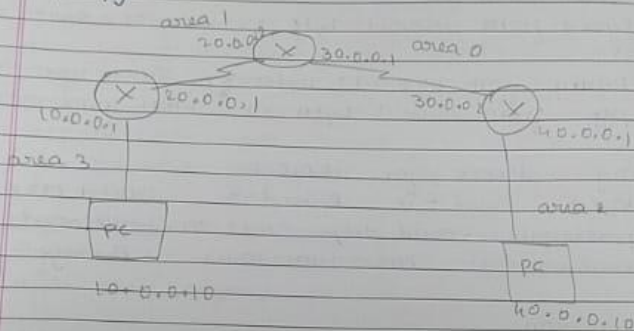 area 1
20.0.0
30.0.0.1
area 0
20.0.0.1
10.0.0.1
30.0.0.
40.0.0.1
area 3
area 2
PC
10.0.0.10
PC
40.0.0.10